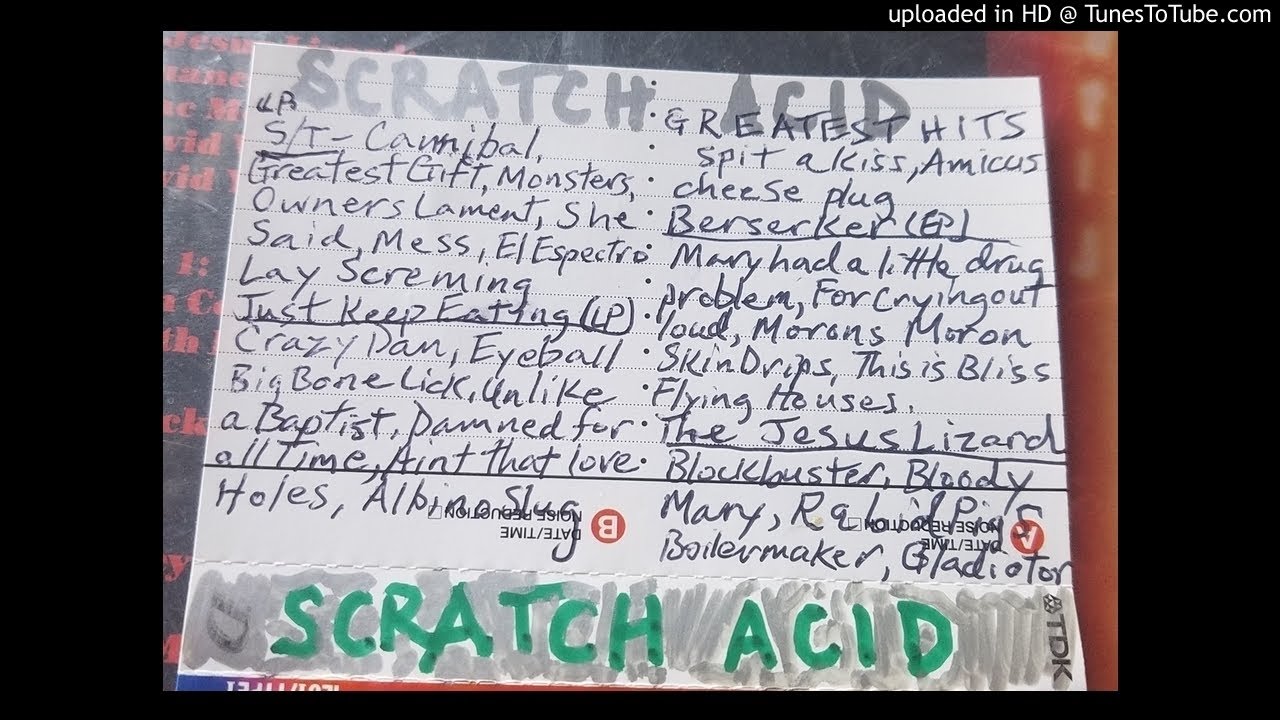 uploaded in HD @ TunesToTube.com
SCRATCH ACID
LP
S/T - Cannibal,
Greatest Gift, Monsters,
Owners Lament, She
Said, Mess, El Espectro
Lay Screming
Just Keep Eating (LP)
Crazy Dan, Eyeball
Big Bone Lick, Unlike
a Baptist, Damned for
all Time, Aint that love
Holes, Albino Slug
GREATEST HITS
Spit a kiss, Amicus
cheese plug
Berserker (EP)
Mary had a little drug
problem, For Crying out
loud, Morons Moron
Skin Drips, This is Bliss
Flying Houses.
The Jesus Lizard
Blockbuster, Bloody
Mary, Rabid Pigs
Boilermaker, Gladiator
B DATE/TIME
NOISE REDUCTION
A DATE/TIME
NOISE REDUCTION
D
SCRATCH ACID
TDK